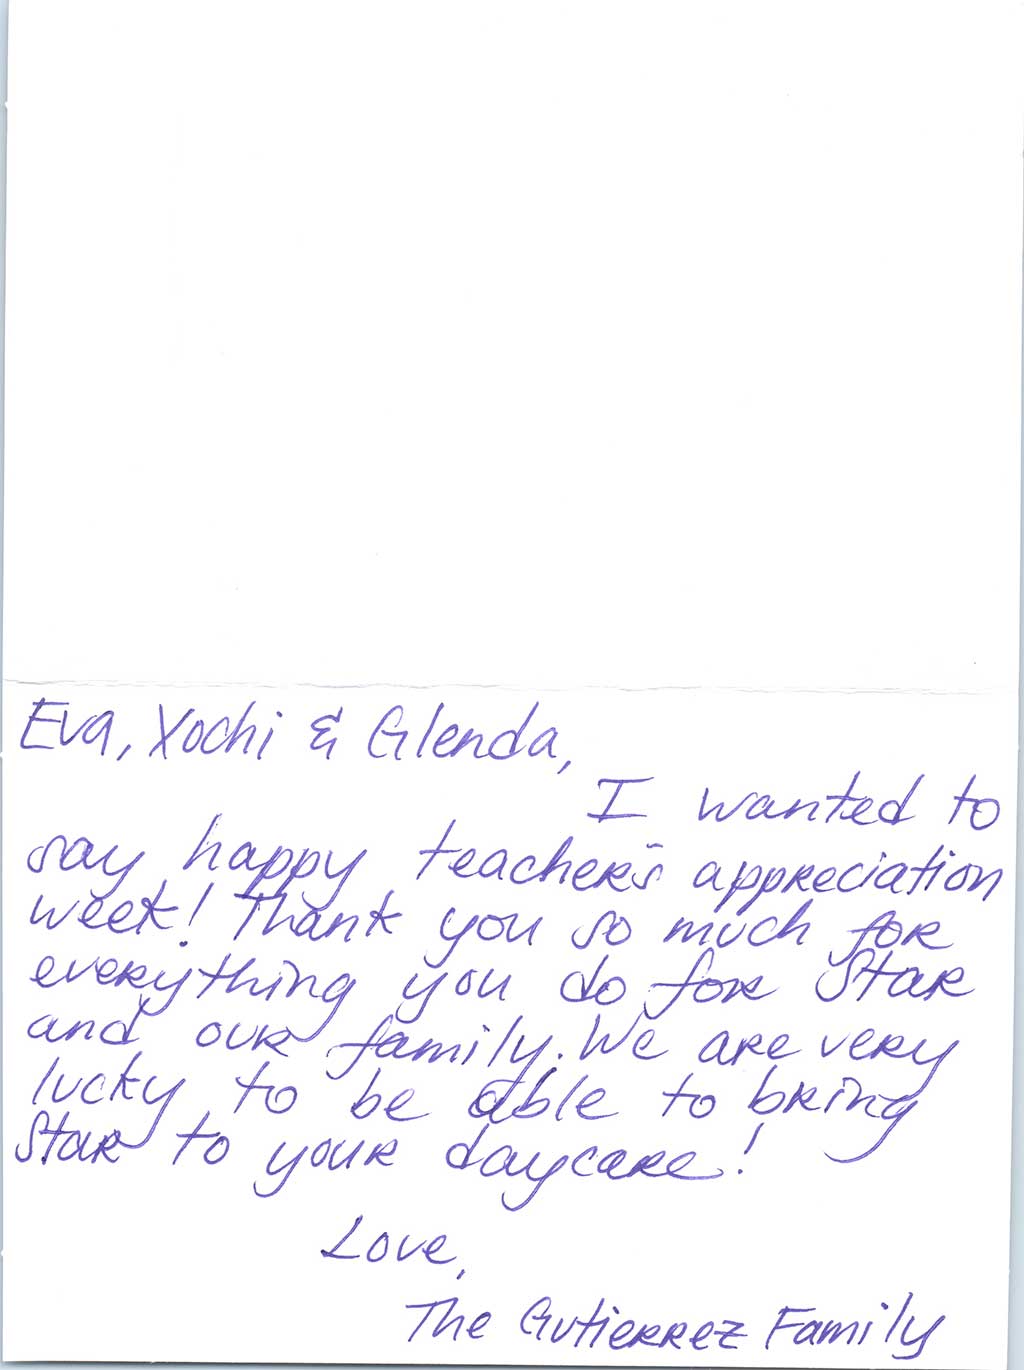 Eva, Xochi & Glenda,
I wanted to
say happy teacher's appreciation
week! Thank you so much for
everything you do for Star
and our family. We are very
lucky to be able to bring
Star to your daycare!
Love,
The Gutierrez Family